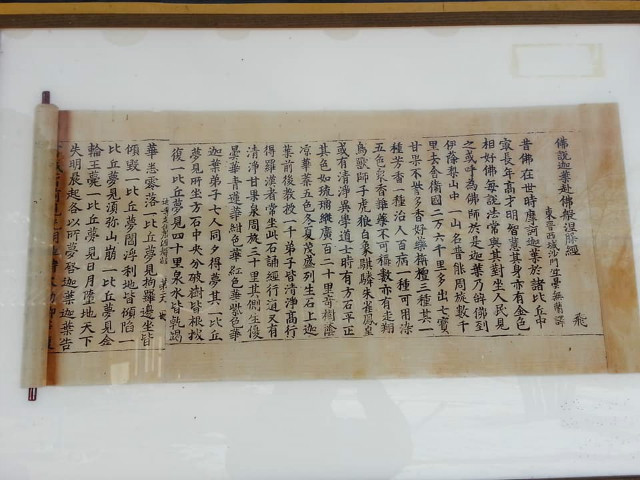 佛說迦葉赴佛般涅槃經
東晉西域沙門竺曇無蘭譯
飛
昔佛在世時摩訶迦葉於諸比丘中
家長年高才明智慧其身亦有金色
相好佛每說法常與其對坐人民見
之或呼為佛師於是迦葉乃辭佛到
伊蓱梨山中一山名普能周旋數千
里去舍衛國二万六千里多出七寶
甘果不訾多香好藥栴檀三種其一
種芳香一種治人百病一種可用染
五色眾香雜藥不可稱數亦有走翔
鳥獸師子虎狼白象騏驎朱雀鳳皇
或有清淨異學道士時有方石平正
其色如琉璃縱廣百二十里奇樹蔭
涼華葉五色冬夏茂盛列生石上迦
葉前後教授一千弟子皆清淨高行
得羅漢者常坐此石誦經行道又有
清淨甘果泉周旋三十里其側生優
曇華青蓮華紺色華紅色華紫色華
迦葉弟子七人同夕得夢其一比丘
夢見所坐方石中央分破樹皆根拔
復一比丘夢見四十里泉水皆乾竭
華悉零落一比丘夢見拘羅邊坐皆
傾毀一比丘夢閻浮利地皆傾陷一
比丘夢見須弥山崩一比丘夢見金
輪王薨一比丘夢見日月墮地天下
失明晨起各以所夢啓迦葉迦葉告